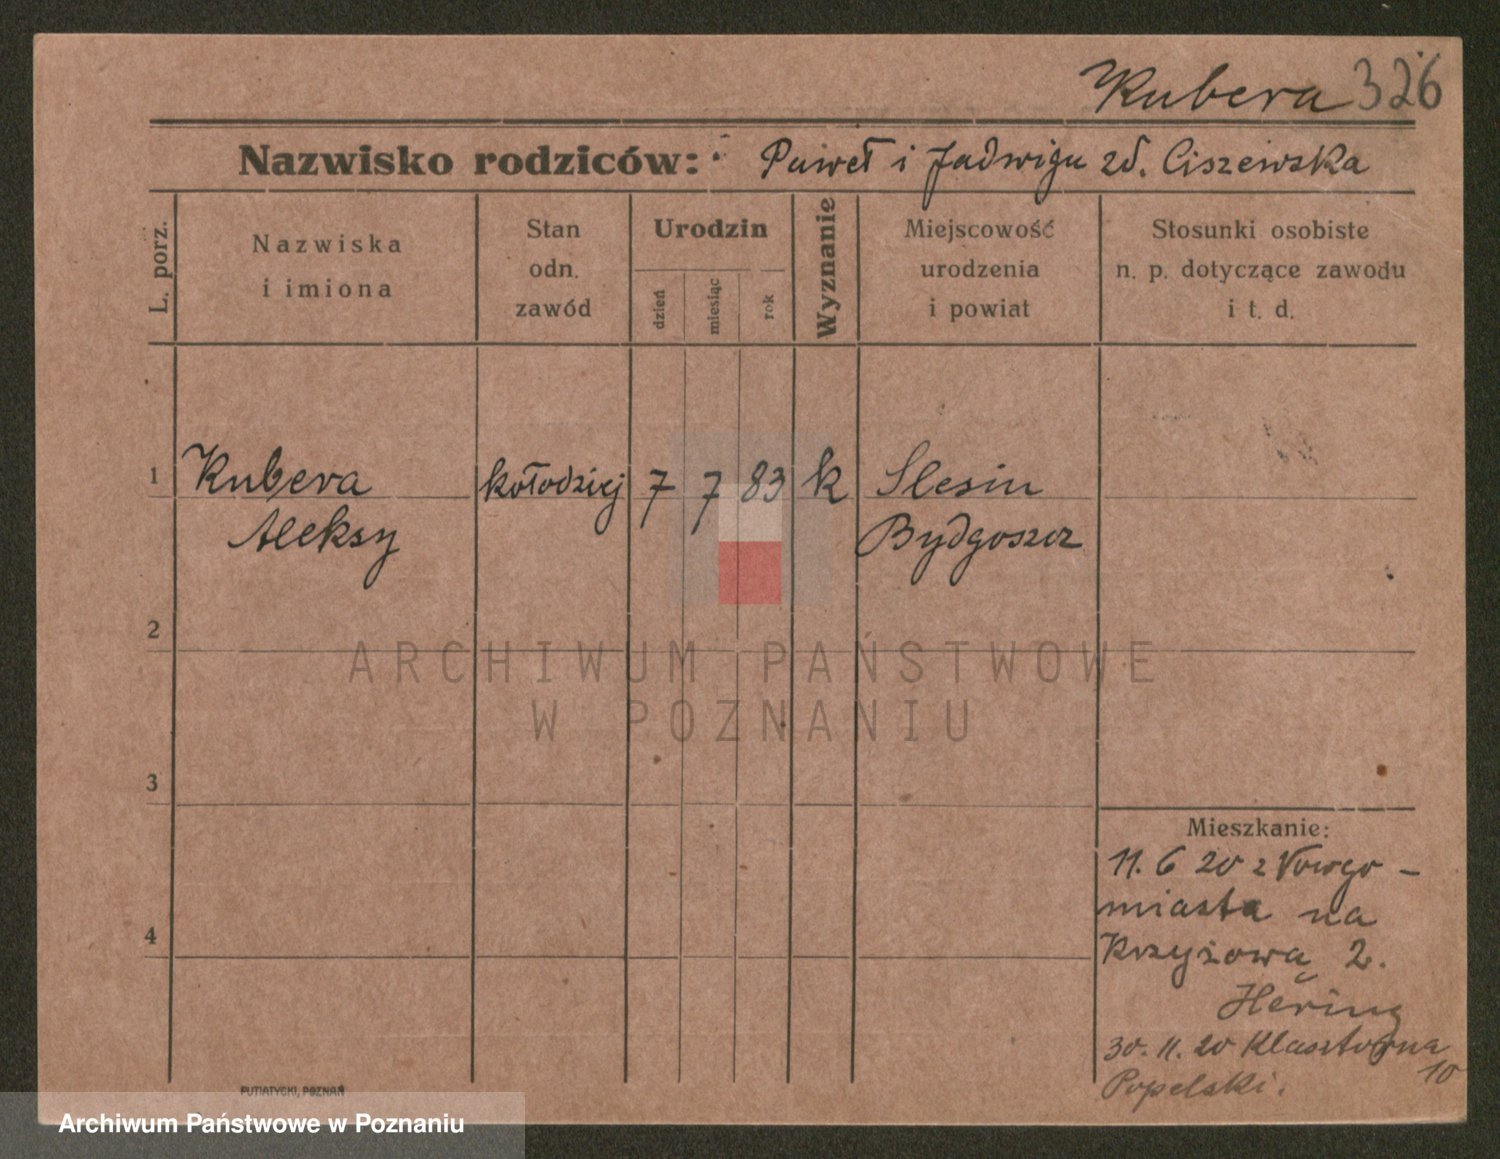 Kubera 326
Nazwisko rodziców: Paweł i Jadwiga zd. Ciszewska
L. porz.
Nazwiska
i imiona
Stan
odn.
zawód
Urodzin
dzień
miesiąc
rok
Wyznanie
Miejscowość
urodzenia
i powiat
Stosunki osobiste
n. p. dotyczące zawodu
i t. d.
1 Kubera kołodziej 7 7 83 k Slesin
Aleksy Bydgoszcz
2
ARCHIWUM PAŃSTWOWE
W POZNANIU
3
Mieszkanie:
11. 6 20 z Nowgo-
miasta na
4
Krzyżową 2.
Hering
30. 11. 20 Klasztorna
10
Popelski.
PUTIATYCKI, POZNAŃ
Archiwum Państwowe w Poznaniu